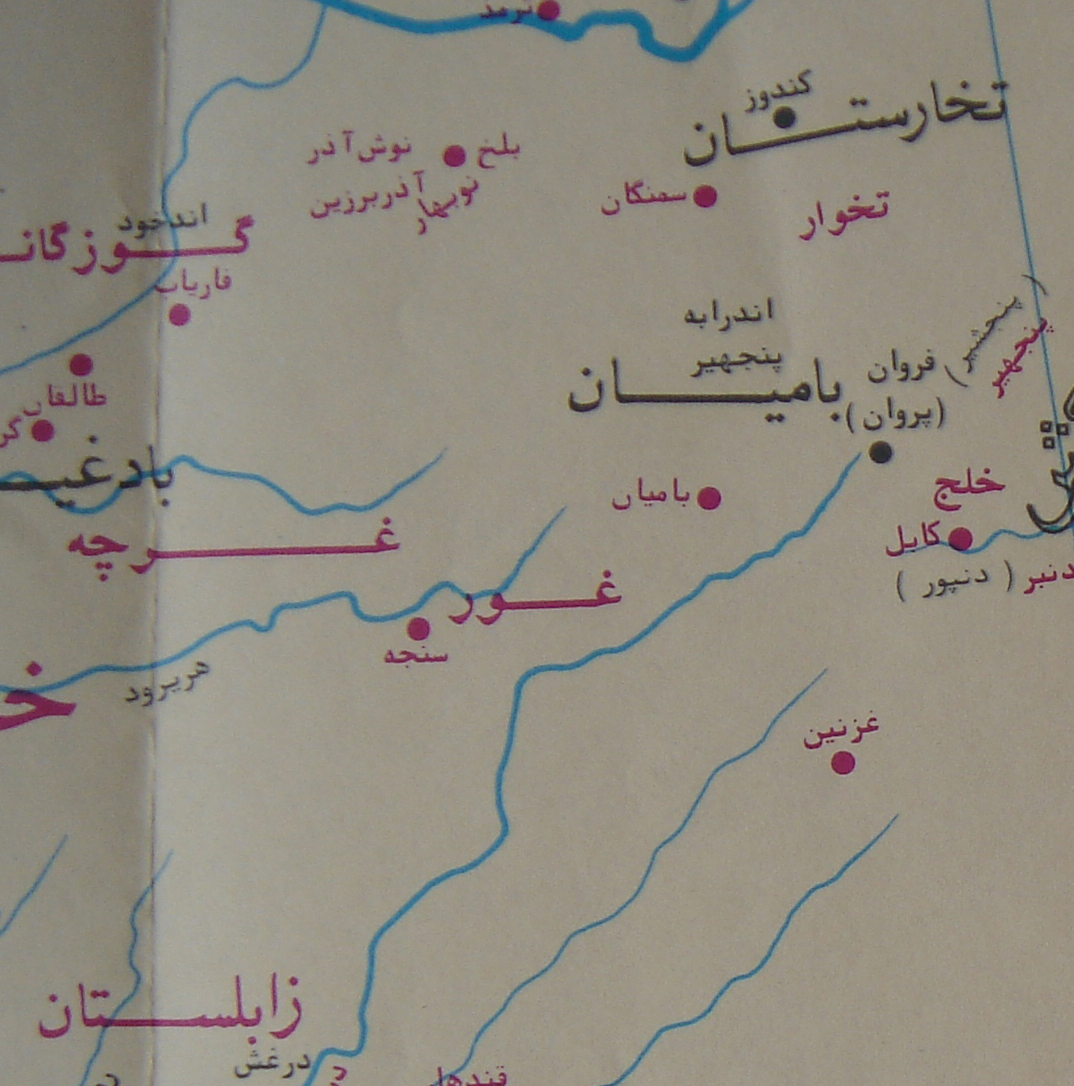 ترمد
کندوز
تخارستان
بلخ
نوش آذر
آذربرزین
نوبهار
سمنگان
تخوار
اندخود
فاریاب
اندرابه
پنجهیر
بامیان
فروان
(پروان)
(پنجشیر)
پنجهیر
طالقان
بامیان
خلج
کابل
دنبر (دنپور)
غرچه
غور
سنجه
هریرود
غزنین
زابلستان
درغش